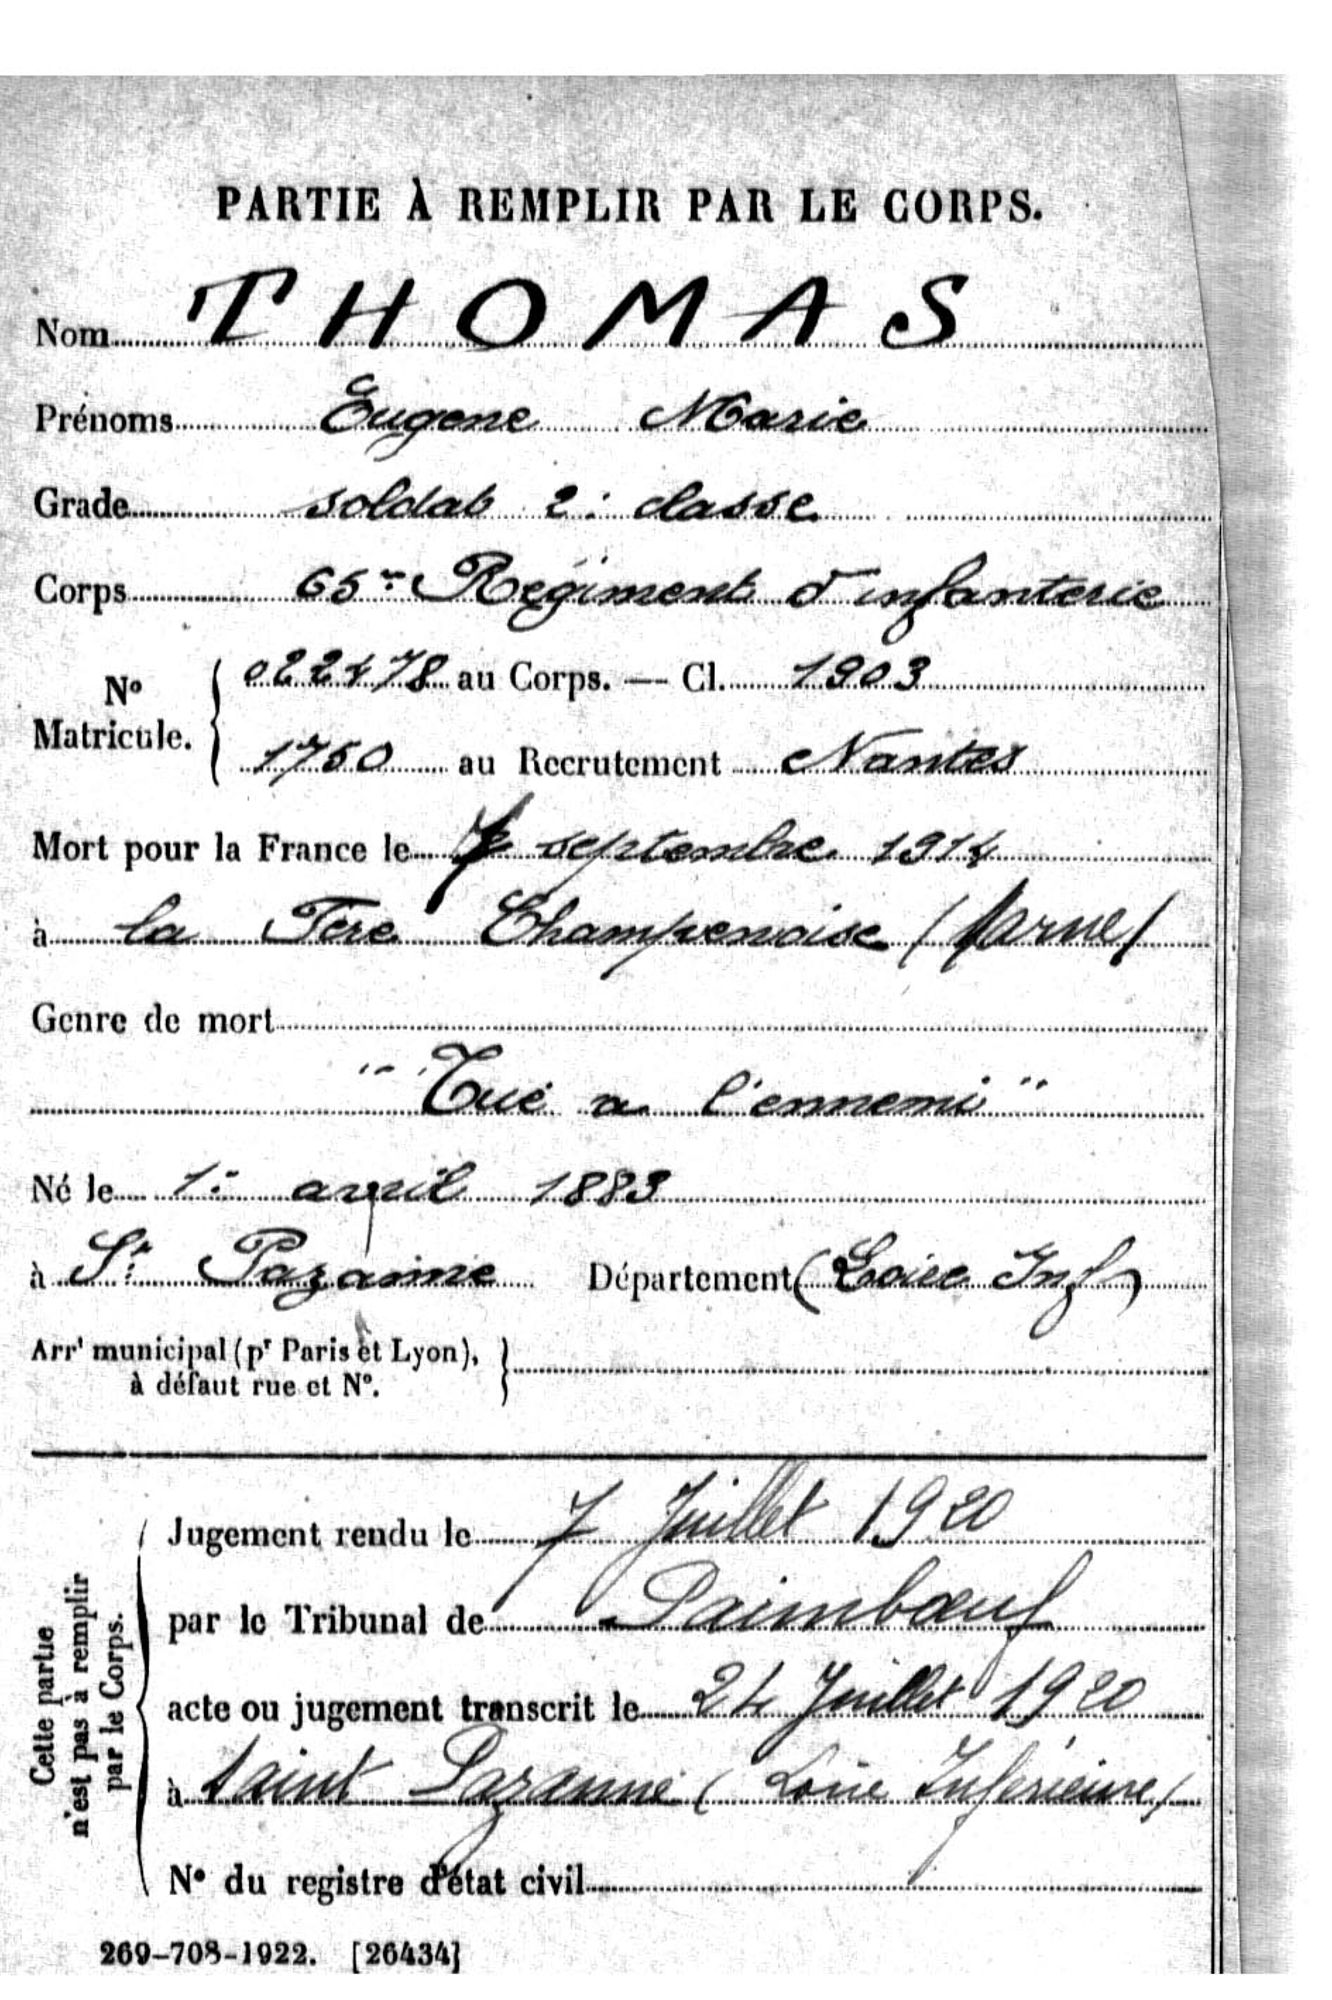 PARTIE À REMPLIR PAR LE CORPS.
Nom THOMAS
Prénoms Eugene Marie
Grade soldat 2e classe
Corps 65me Régiment d'infanterie
No Matricule. { 022478 au Corps. — Cl. 1903
1750 au Recrutement Nantes
Mort pour la France le septembre 1914
à la Fère Champenoise (Marne)
Genre de mort
"Tué a l'ennemi"
Né le 1er avril 1883
à St Pazanne Département (Loire Inf)
Arrt municipal (pr Paris et Lyon),
à défaut rue et No. }
Cette partie n'est pas à remplir par le Corps.
Jugement rendu le 7 Juillet 1920
par le Tribunal de Paimbœuf
acte ou jugement transcrit le 24 Juillet 1920
à Saint Pazanne (Loire Inférieure)
No du registre d'état civil
269-708-1922. [26434]